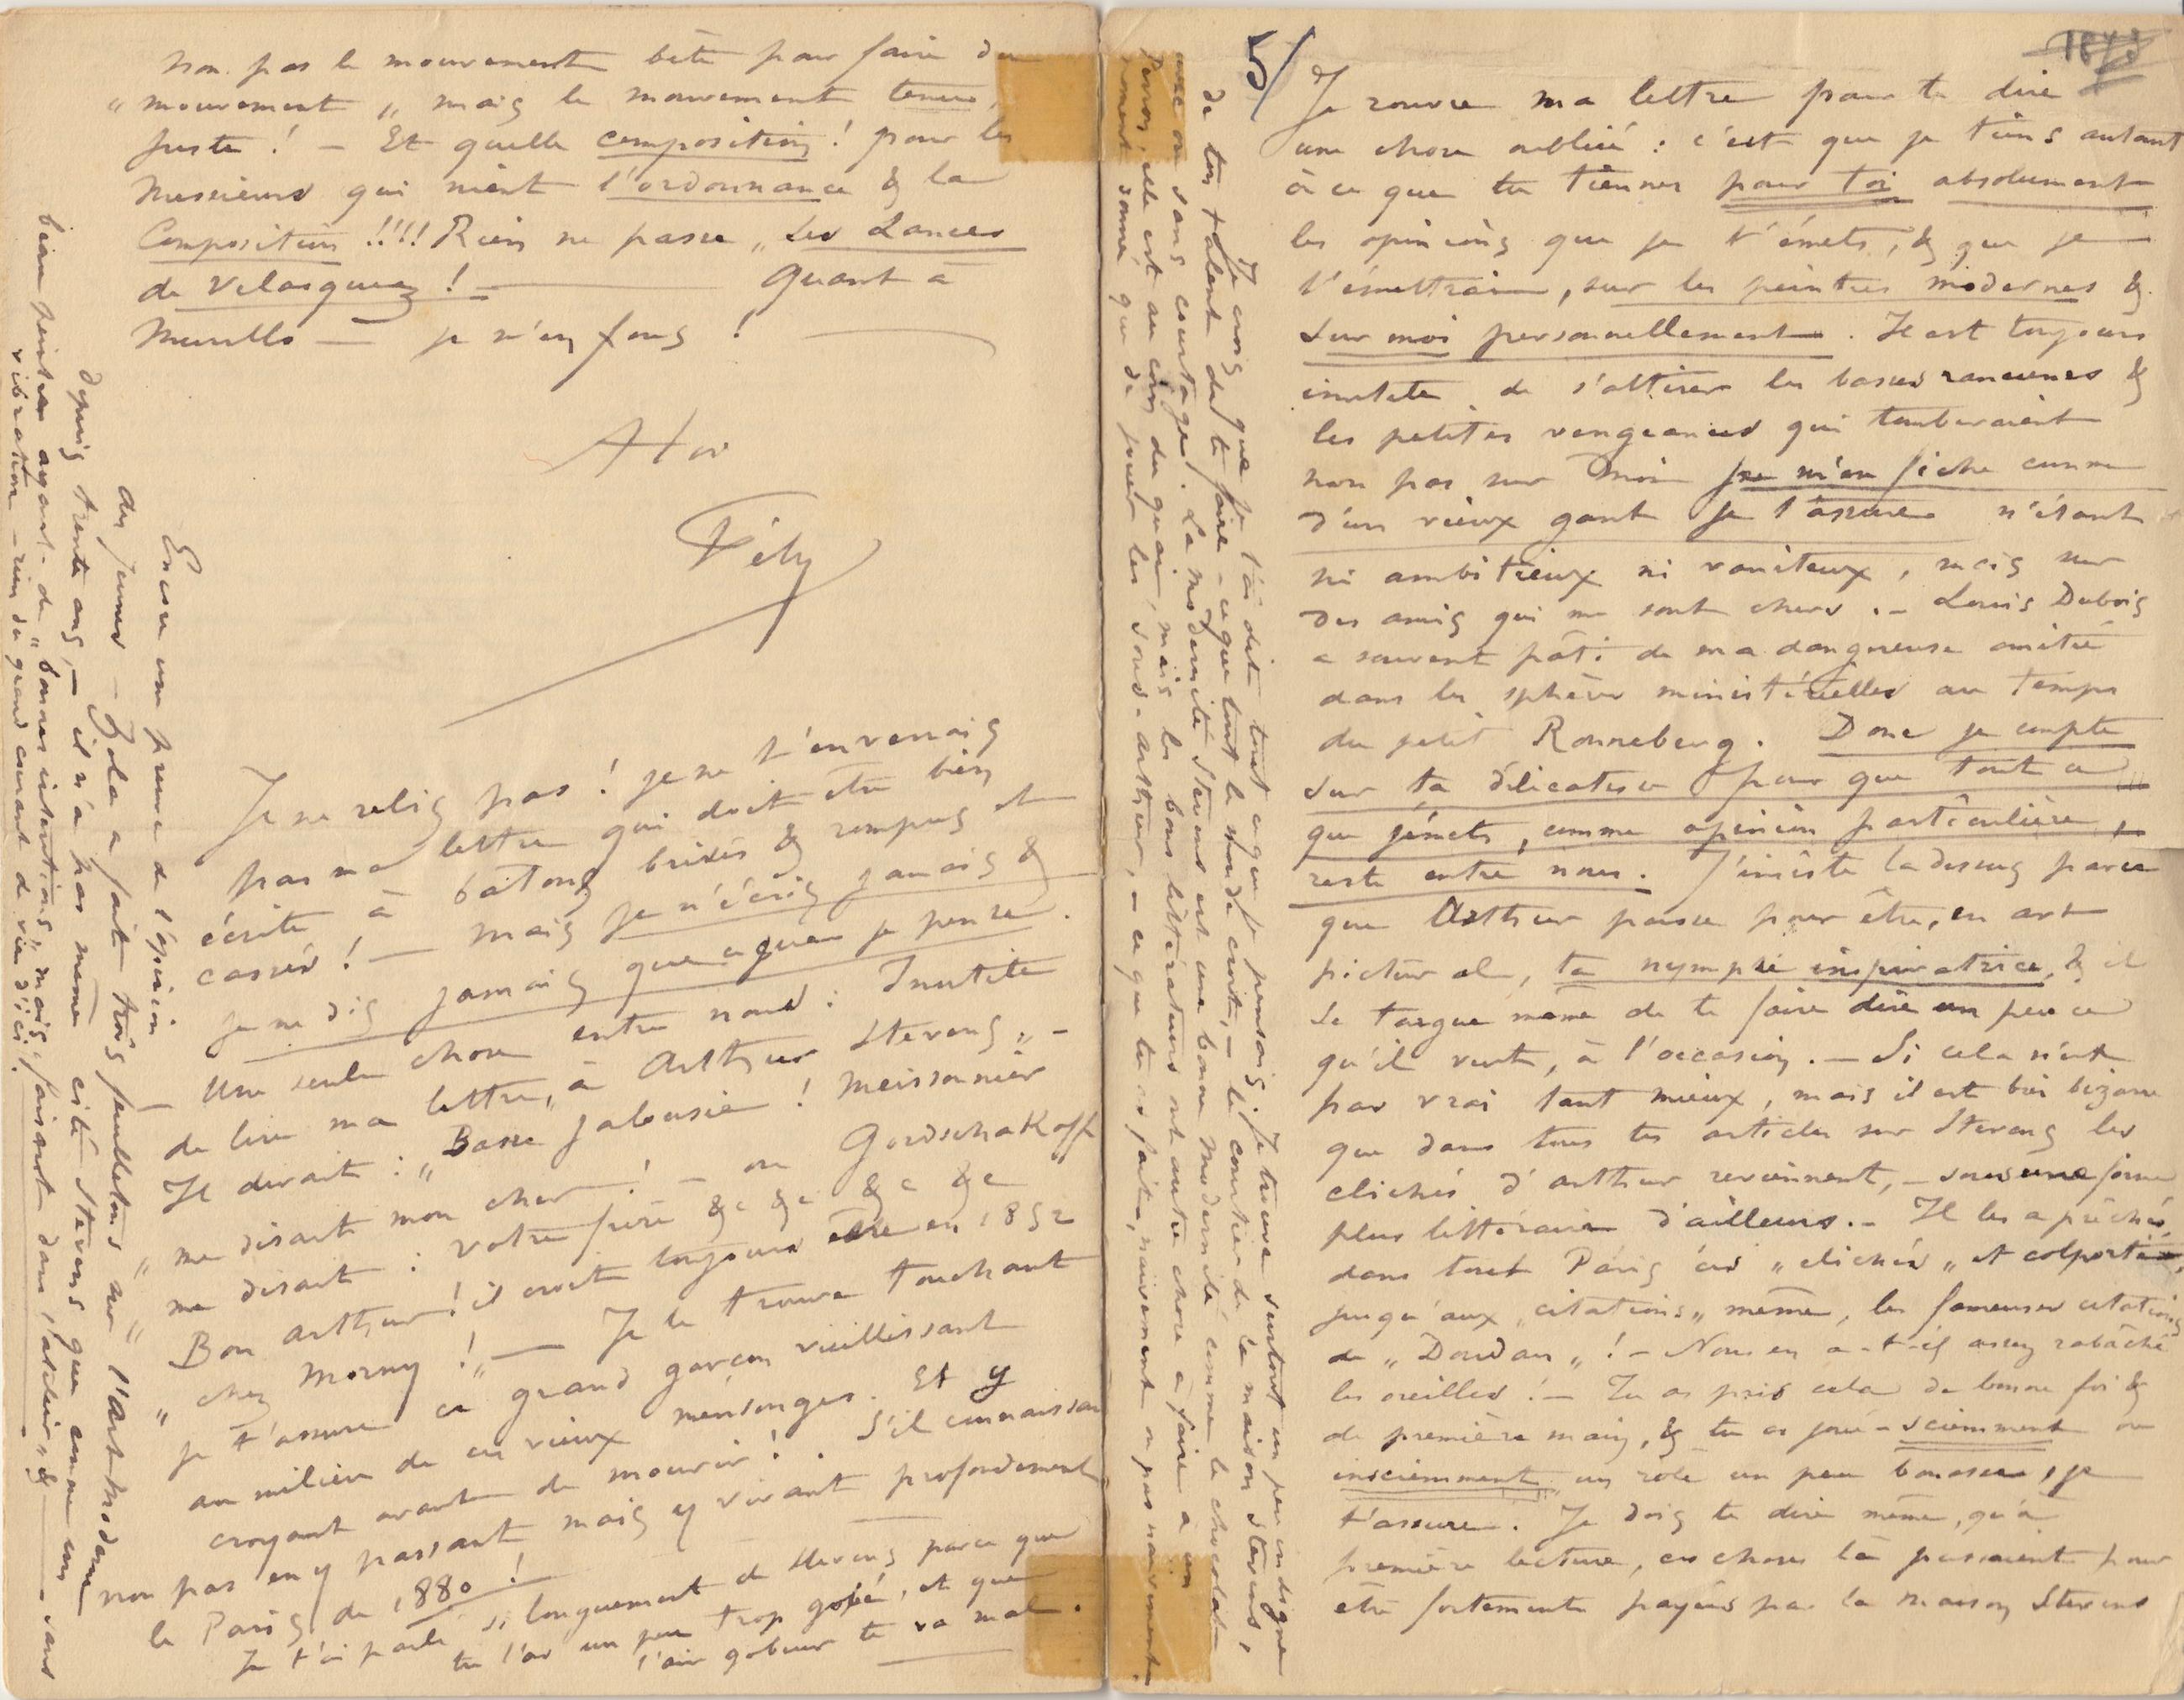 non pas le mouvement bête pour faire du
"mouvement" mais le mouvement tenu,
juste ! – Et quelle composition ! pour les
Messieurs qui nient l'ordonnance & la
Composition !!!! Rien ne passe "Les Lances
de Velasquez ! – Quant à
Murillo – je n'en fous !
A toi
Fély
Je ne relis pas ! je ne t'enverrais
pas ma lettre qui doit être bien
écrite à bâtons brisés & rompus et
cassés ! – mais je n'écris jamais &
je ne dis jamais que ce que je pense.
Une seule chose entre nous : Inutile
de lire ma lettre, à Arthur Stevens" –
Il dirait : "Basse jalousie ! Meissonnier
"me disait mon cher ! – ou Gordschakoff
me disait : votre frère &c &c &c &c
Bon Arthur ! il croit toujours être en 1852
"chez Morny !" – Je le trouve touchant
je t'assure ce grand garçon vieillissant
au milieu de ces vieux mensonges. Et y
croyant avant de mourir ! S'il connaissait
non pas en y passant mais y vivant profondément
le Paris de 1880 !
Je t'ai parlé si longuement de Stevens parce que
tu l'as un peu trop gobé, et que
l'air gobeur te va mal.
Encore une preuve de l'opinion
des jeunes – Zola a fait trois feuilletons sur "l'art moderne"
depuis trente ans, – il n'a pas même cité Stevens que comme un
bon peintre ayant de "bonnes intentions" mais, faisant dans l'atelier, & – sans
vibration – rien du grand courant de vie d'ici.
5/
1878
Je rouvre ma lettre pour te dire
une chose oubliée : c'est que je tiens autant
à ce que tu tiennes pour toi absolument
les opinions que je t'émets, & que je
t'émettrai, sur les peintres modernes &
sur moi personnellement. Il est toujours
inutile de s'attirer les basses rancunes &
les petites vengeances qui tomberaient
non pas sur moi je m'en fiche comme
d'un vieux gant je t'assure n'étant
ni ambitieux ni vaniteux, mais sur
des amis qui me sont chers. – Louis Dubois
a souvent pâti de ma dangereuse amitié
dans les sphères ministérielles au temps
du petit Ronneberg. Donc je compte
sur ta délicatesse pour que tout ce
que j'émets, comme opinion particulière,
reste entre nous. J'insiste ladessus parce
que Arthur passe pour être, en art
pictural, ta nymphe inspiratrice, & il
se targue même de te faire dire un peu ce
qu'il veut, à l'occasion. – Si cela n'est
pas vrai tant mieux, mais il est bien bizarre
que dans tous tes articles sur Stevens les
clichés d'Arthur reviennent, – sous une forme
plus littéraire d'ailleurs. – Il les a prêchés
dans tout Paris ces "clichés" et colportés,
jusqu'aux "citations" même, les fameuses citations
de "Doudan" ! – Nous en a-t-il assez rabâché
les oreilles ! – Tu as pris cela de bonne foi &
de première main, & tu as joué – sciemment ou
insciemment, un rôle un peu bonasse, je
t'assure. Je dois te dire même, qu'à
première lecture, ces choses là passaient pour
être fortement payées par la maison Stevens
Je crois que je t'ai dit tout ce que je pensais, Je trouve surtout un peu indigne
de ton talent de te faire – ce que tout le monde croit, – le courtier de la maison Stevens,
avec ou sans courtage. La modernité Stevens est une bonne modernité comme le chocolat
Perron, elle est au coin du quai, mais les bons littérateurs ont autre chose à faire à un
moment donné que de jouer les sous-Arthur, – ce que tu as fait, naïvement ou pas naïvement.